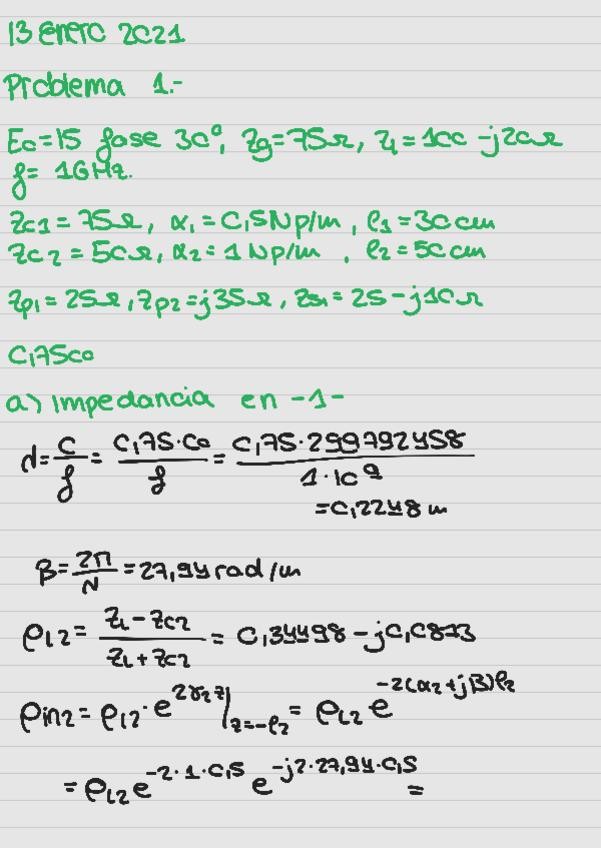 13 enero 2021
Problema 1.-
E₀=15 fase 30°, Zg=75Ω, ZL=100-j20Ω
f= 1GHz.
Zc1=75Ω, α₁=0,5Np/m, l1=30cm
Zc2=50Ω, α2=1Np/m, l2=50cm
Zp1=25Ω, Zp2=j35Ω, Zs1=25-j10Ω
0,75c0
a) Impedancia en -1-
λ= c/f = 0,75·c0/f = 0,75·299792458/1·10⁹
=0,2248m
β=2π/λ=27,94rad/m
ρL2= ZL-Zc2/ZL+Zc2 = 0,34498-j0,0873
ρin2= ρL2·e^2γ2z|z=-l2= ρL2 e^-2(α2+jβ)l2
=ρL2e^-2·1·0,5 e^-j2·27,94·0,5=